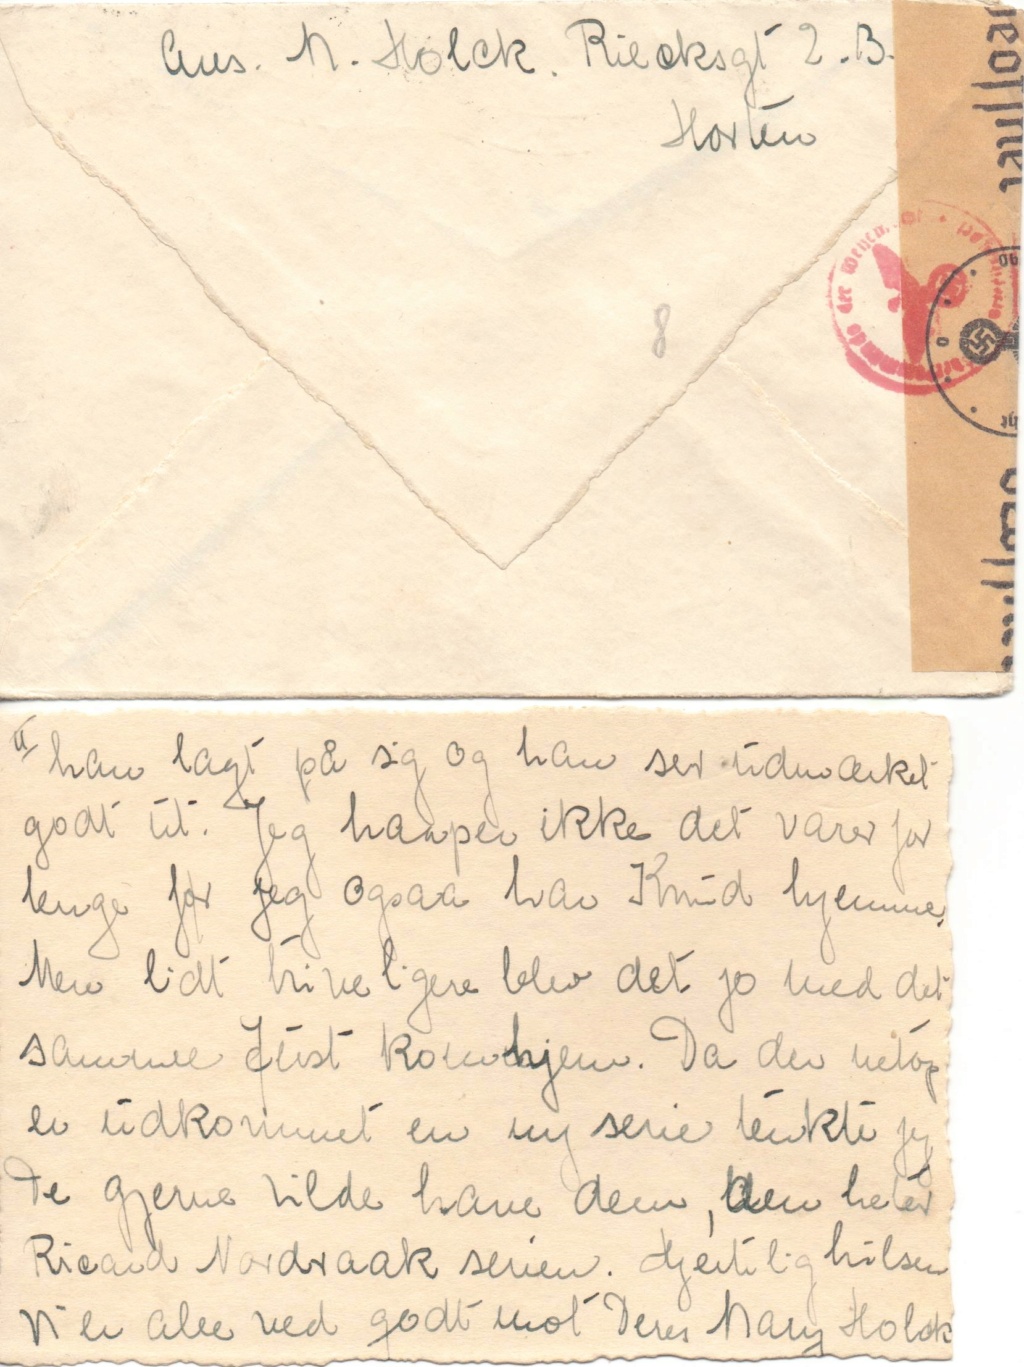 Avs. N. Holck. Riecksgt 2.B.
Horten
8
II/ han lagt på sig og han ser udmærket
godt ut. Jeg haaper ikke det varer for
lenge før jeg ogsaa har Knud hjemme,
Men lidt triveligere blev det jo med det
samme Just kom hjem. Da der netop
er udkommet en ny serie tenkte jeg
De gjerne vilde have dem, den heter
Ricard Nordraak serien. Hjertilig hilsen
Vi er alle ved godt mot Deres Mary Holck